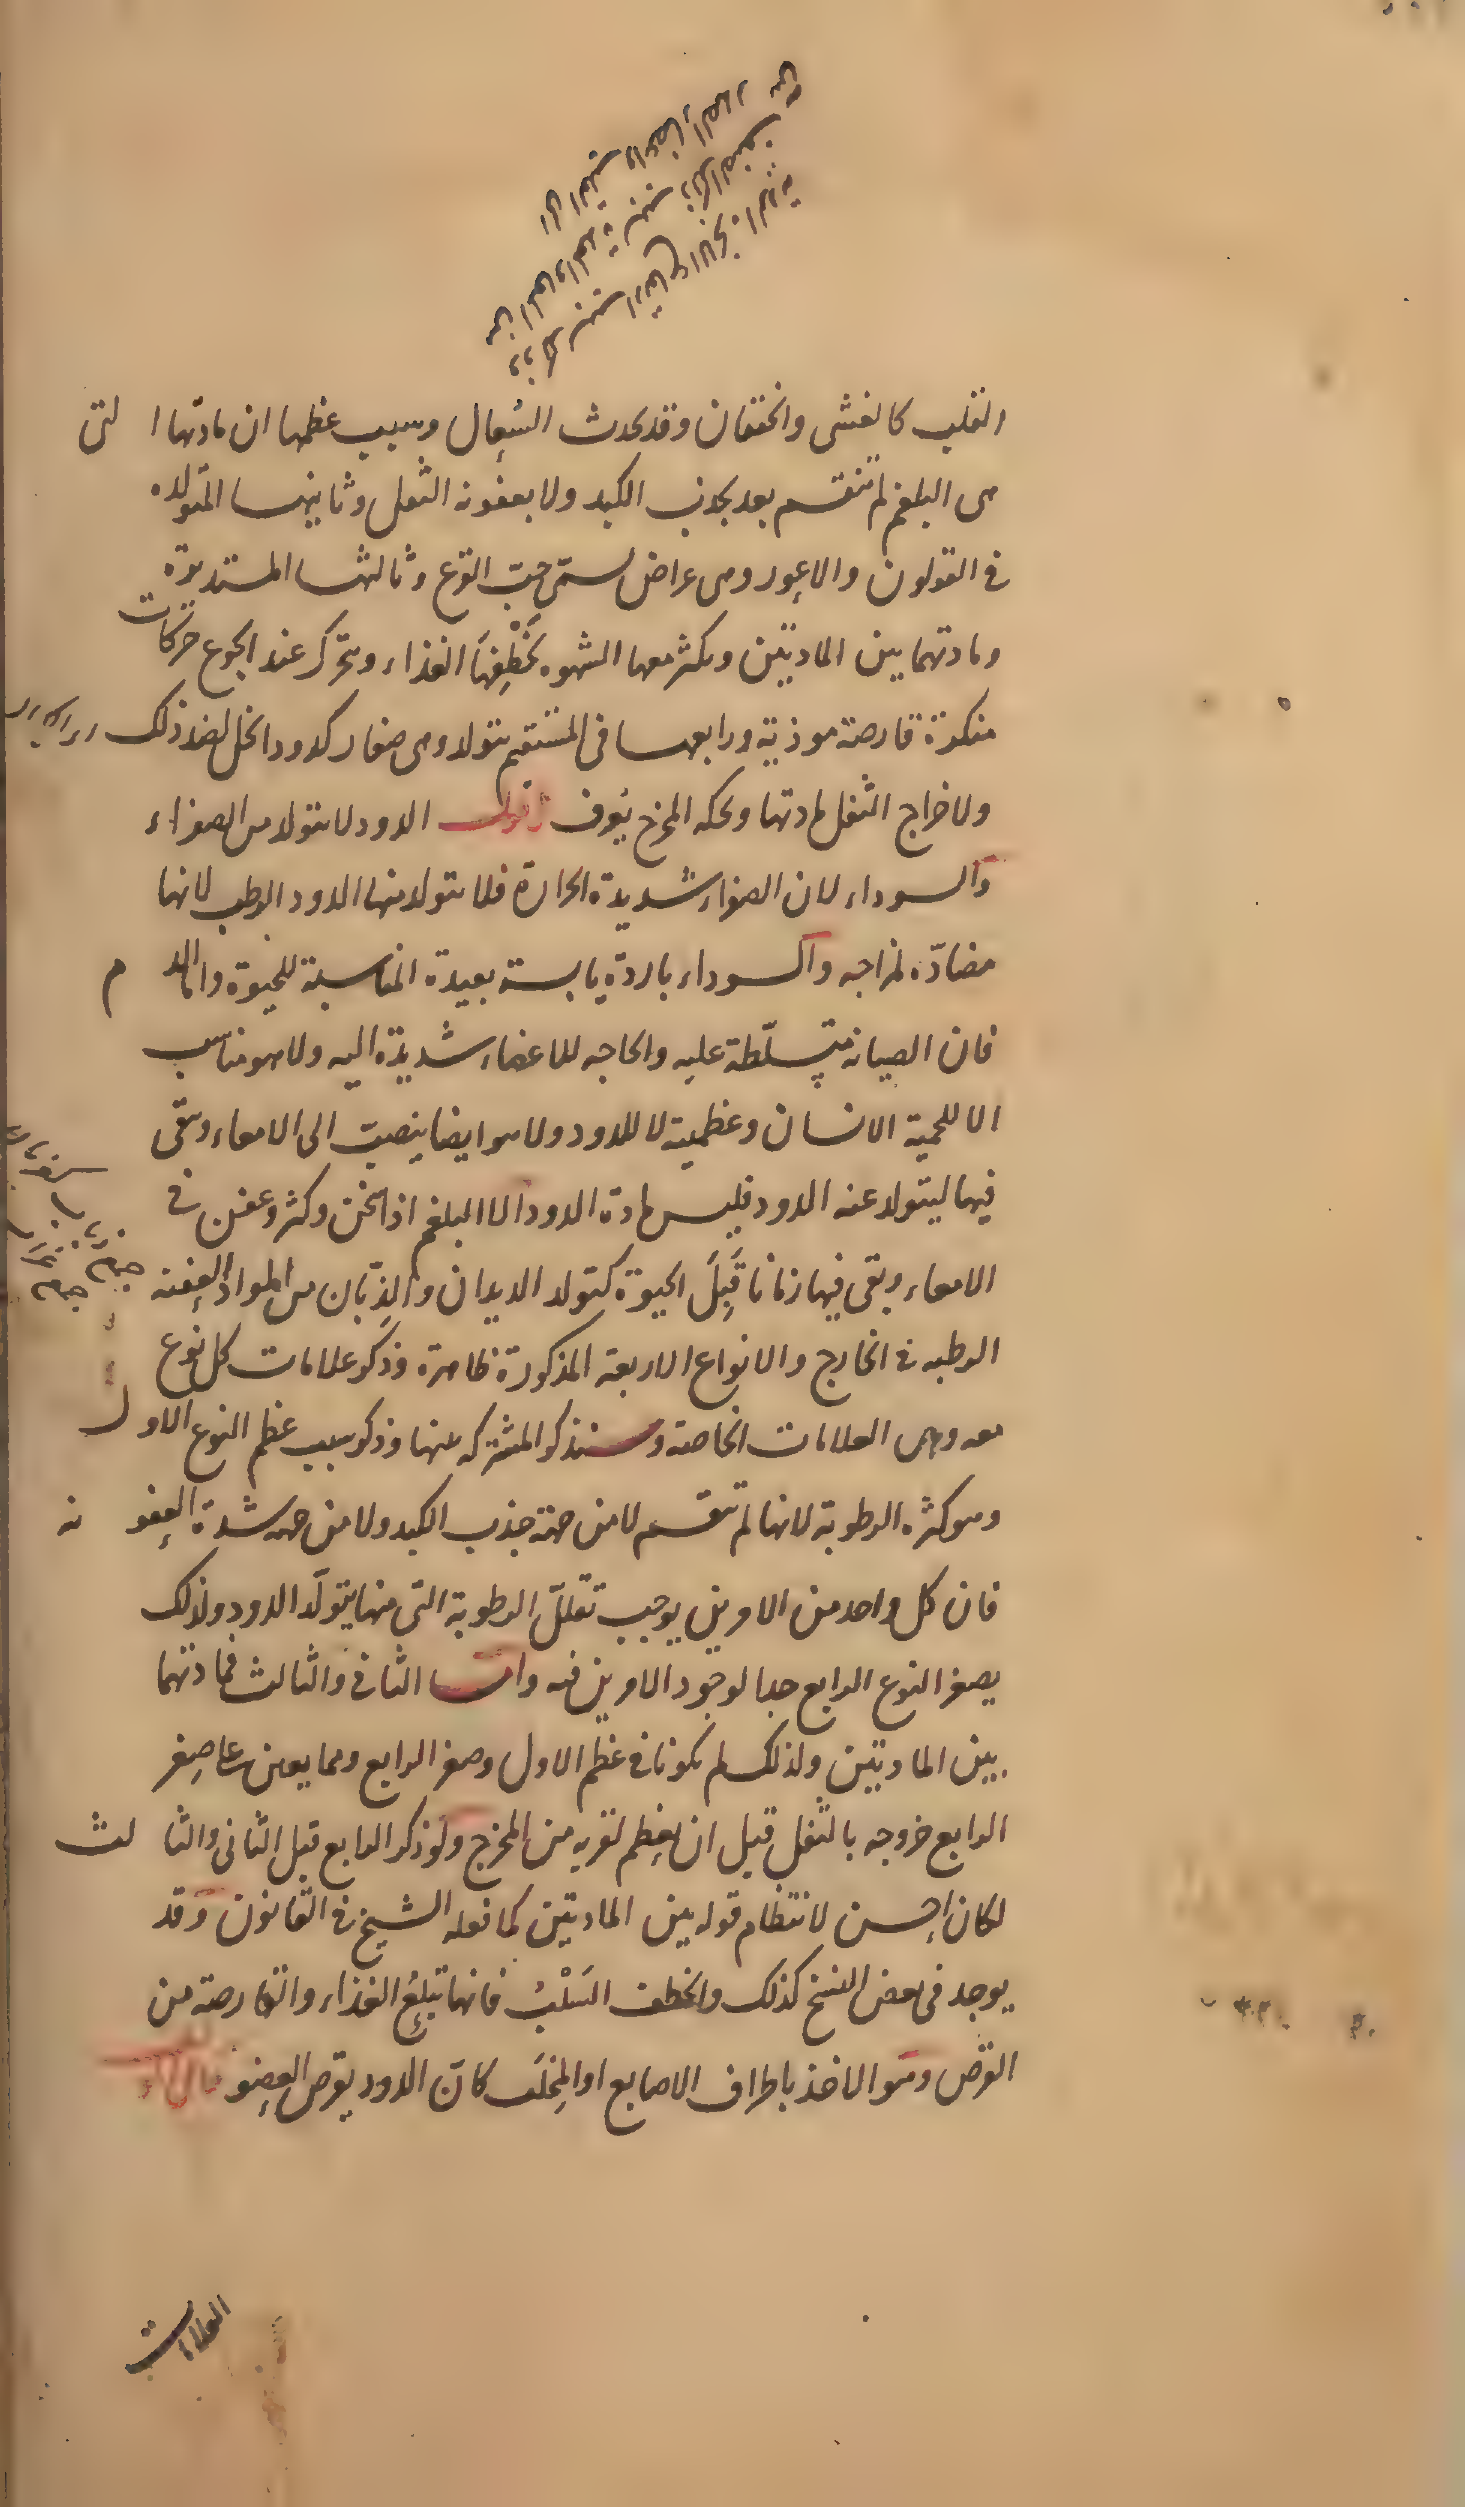 القلب كالغشى والخفقان وقد يحدث السُعال وسبب عظمها ان مادتها التى
هى البلغم لم تنقسم بعد بجذب الكبد ولا بعفونة الثفل وثانيها المتولده
فى القولون والاعور وهى عراض تسمّى حبّ القرع وثالثها المستديرة
ومادتهما بين المادتين ويكثر معها الشهوه لخَطْفِهَا الغذاء ويتحرك عند الجوع حركات
منكرة قارصة موذية ورابعها فى المستقيم يتولد وهى صغار كدود الخل لضد ذلك
ولاخراج الثفل لمادتها وبحكه المخرج يعرف اقول الدود لا يتولد من الصفراء
والسوداء لان الصفراء شديدة الحرارة فلا يتولد منها الدود الرطب لانها
مضادّه لمزاجه والسوداء باردة يابسة بعيدة المناسبة للحيوة واما الدم
فان الصيانة متسلّطة عليه والحاجه للاعضاء شديدة اليه ولا هو مناسب
الا للحمية الانسان وعظمية لا للدود ولا هو ايضا ينصبّ الى الامعاء ويبقى
فيها ليتولد عنه الدود فليس مادة الدود الا البلغم اذا سخن وكثر وعفن فى
الامعاء وبقى فيها زمانا قَبِلَ الحيوة كتولد الديدان والذِبّان من المواد العفنه
الرطبه فى الخارج والانواع الاربعة المذكورة ظاهرة وذكر علامات كل نوع
معه وهى العلامات الخاصة وسنذكر المشتركه منها وذكر سبب عظم النوع الاول
وهو كثره الرطوبة لانها لم تنقسم لا من جهة جذب الكبد ولا من جهه شدة العفونه
فان كل واحد من الامرين يوجب تقلل الرطوبة التى منها يتولّد الدود ولذلك
يصغر النوع الرابع جدا لوجود الامرين فيه واما الثانى والثالث فمادتهما
بين المادتين ولذلك لم يكونا فى عظم الاول وصغر الرابع ومما يعين على صغر
الرابع خروجه بالثفل قبل ان يعظم لقربه من المخرج ولو ذكر الرابع قبل الثانى والثالث
لكان احسن لانتظام قوله بين المادتين كما فعله الشيخ فى القانون وقد
يوجد فى بعض النسخ كذلك والخطف السَلْبُ فانها تبلع الغذاء والقارصة من
القرص وهو الاخذ باطراف الاصابع او المِخلَب كانّ الدود يقرص العضو
العلامات